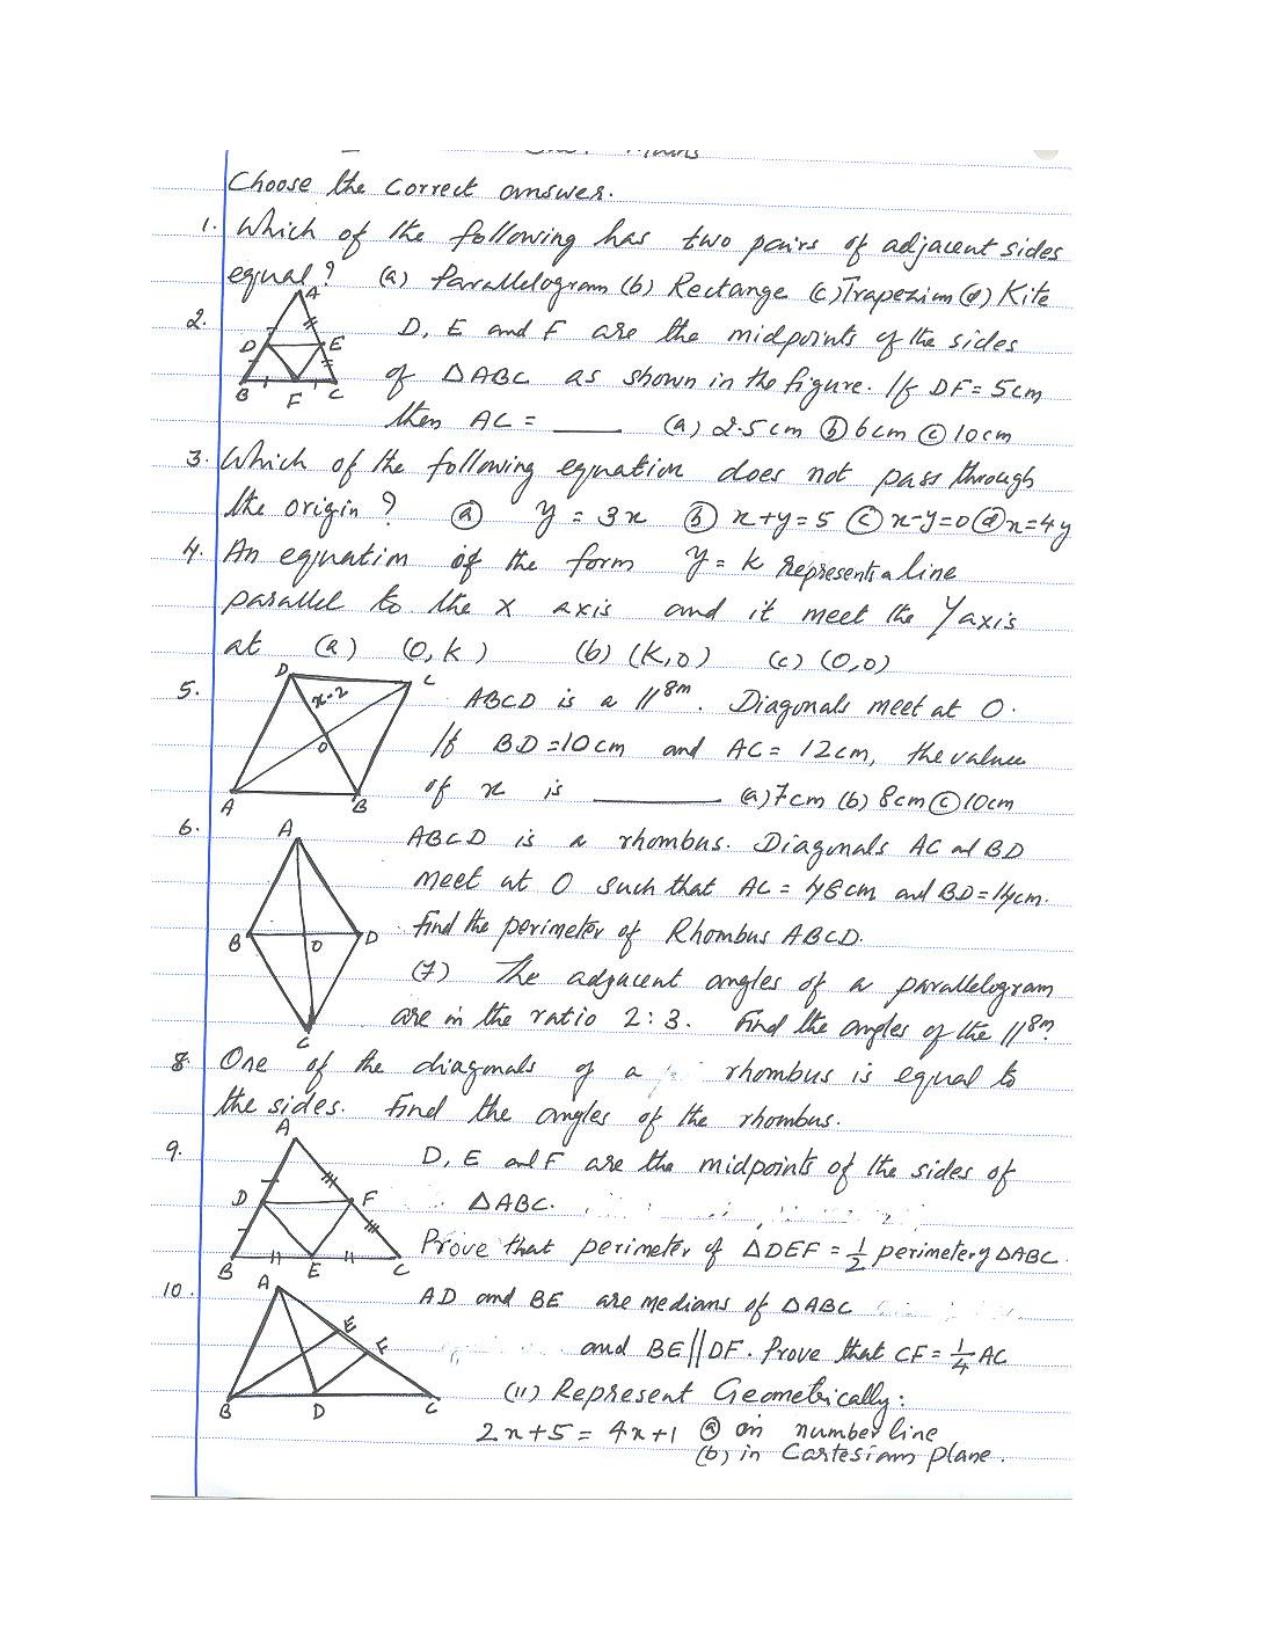 Choose the correct answer.
1. Which of the following has two pairs of adjacent sides
equal? (a) Parallelogram (b) Rectange (c) Trapezium (d) Kite
2. D, E and F are the midpoints of the sides
of ΔABC as shown in the figure. If DF = 5cm
then AC = ____ (a) 2.5cm (b) 6cm (c) 10cm
A
D
E
B
F
C
3. Which of the following equation does not pass through
the origin? (a) y = 3x (b) x+y=5 (c) x-y=0 (d) x=4y
4. An equation of the form y = k represents a line
parallel to the x axis and it meet the Y axis
at (a) (0, k) (b) (k, 0) (c) (0,0)
5. ABCD is a ||gm. Diagonals meet at O.
If BD = 10cm and AC = 12cm, the value
of x is ____ (a) 7cm (b) 8cm (c) 10cm
D
C
x-2
O
A
B
6. ABCD is a rhombus. Diagonals AC and BD
meet at O such that AC = 48cm and BD = 14cm.
Find the perimeter of Rhombus ABCD.
A
B
O
D
C
(7) The adjacent angles of a parallelogram
are in the ratio 2:3. Find the angles of the ||gm.
8. One of the diagonals of a rhombus is equal to
the sides. Find the angles of the rhombus.
9. D, E and F are the midpoints of the sides of
ΔABC.
Prove that perimeter of ΔDEF = 1/2 perimeter of ΔABC.
A
D
F
B
E
C
10. AD and BE are medians of ΔABC
and BE || DF. Prove that CF = 1/4 AC
A
E
F
B
D
C
(11) Represent Geometrically:
2x+5 = 4x+1 (a) on number line
(b) in Cartesian plane.